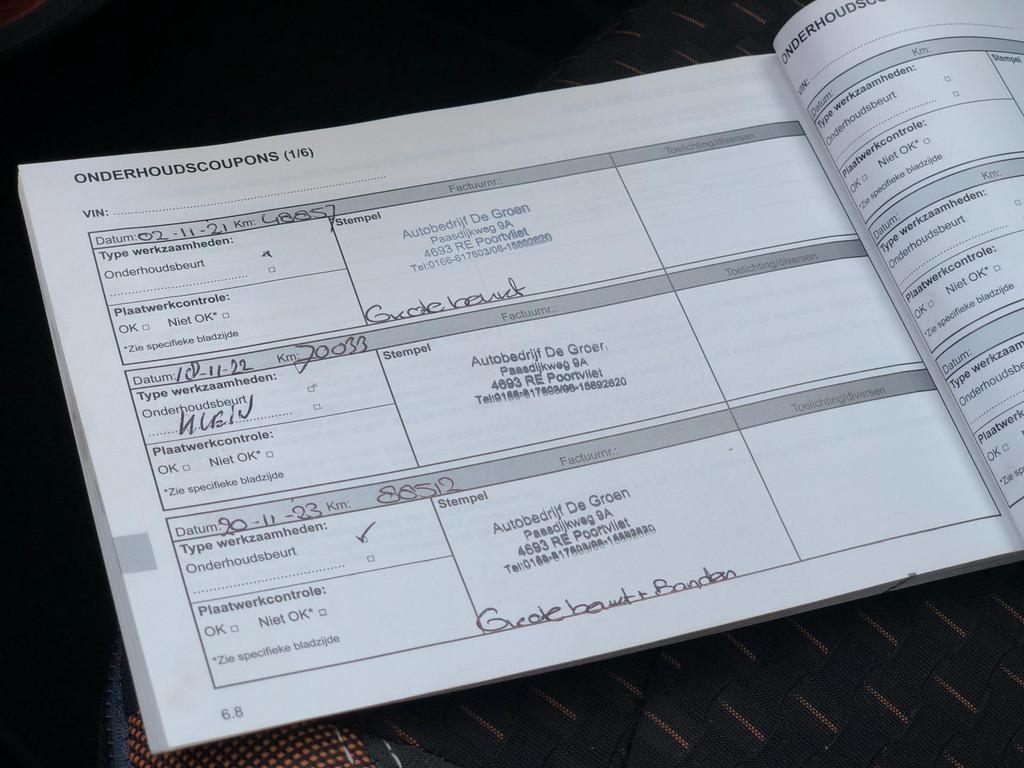 ONDERHOUDSCOUPONS (1/6)
VIN:
Factuurnr.: Toelichting/diversen
Datum: 02-11-21 Km: 48857
Stempel
Type werkzaamheden:
Onderhoudsbeurt
Plaatwerkcontrole:
OK Niet OK*
*Zie specifieke bladzijde
Autobedrijf De Groen
Paasdijkweg 9A
4693 RE Poortvliet
Tel:0166-617603/06-15892620
Grote beurt
Factuurnr.: Toelichting/diversen
Datum: 10-11-22 Km: 70033
Stempel
Type werkzaamheden:
Onderhoudsbeurt
KLEIN
Plaatwerkcontrole:
OK Niet OK*
*Zie specifieke bladzijde
Autobedrijf De Groen
Paasdijkweg 9A
4693 RE Poortvliet
Tel:0166-617603/06-15892620
Factuurnr.: Toelichting/diversen
Datum: 20-11-'23 Km: 88512
Stempel
Type werkzaamheden:
Onderhoudsbeurt
Plaatwerkcontrole:
OK Niet OK*
*Zie specifieke bladzijde
Autobedrijf De Groen
Paasdijkweg 9A
4693 RE Poortvliet
Tel:0166-617603/06-15892620
Grote beurt + Banden
6.8
ONDERHOUDSCO
VIN:
Km:
Datum:
Stempel
Type werkzaamheden:
Onderhoudsbeurt
Plaatwerkcontrole:
OK Niet OK
*Zie specifieke bladzijde
Km:
Datum:
Type werkzaamheden:
Onderhoudsbeurt
Plaatwerkcontrole:
OK Niet OK*
*Zie specifieke bladzijde
Datum:
Type werkzaam
Onderhoudsbe
Plaatwerk
OK